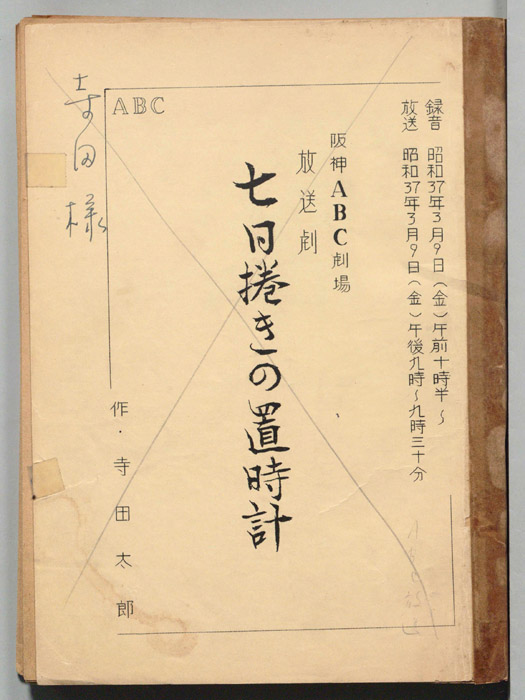 録音 昭和37年3月9日(金)午前十時半〜
放送 昭和37年3月9日(金)午後九時〜九時三十分
阪神ABC劇場
放送劇
七日捲きの置時計
作・寺田太郎
ABC
様